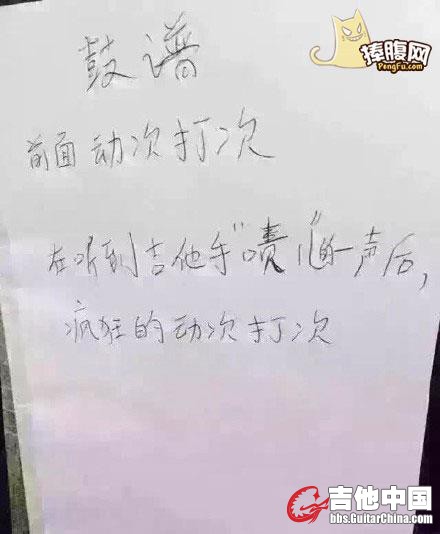 捧腹网
PengFu.com
鼓谱
前面动次打次
在听到吉他手“啧儿”的一声后，
疯狂的动次打次
吉他中国
bbs.GuitarChina.com